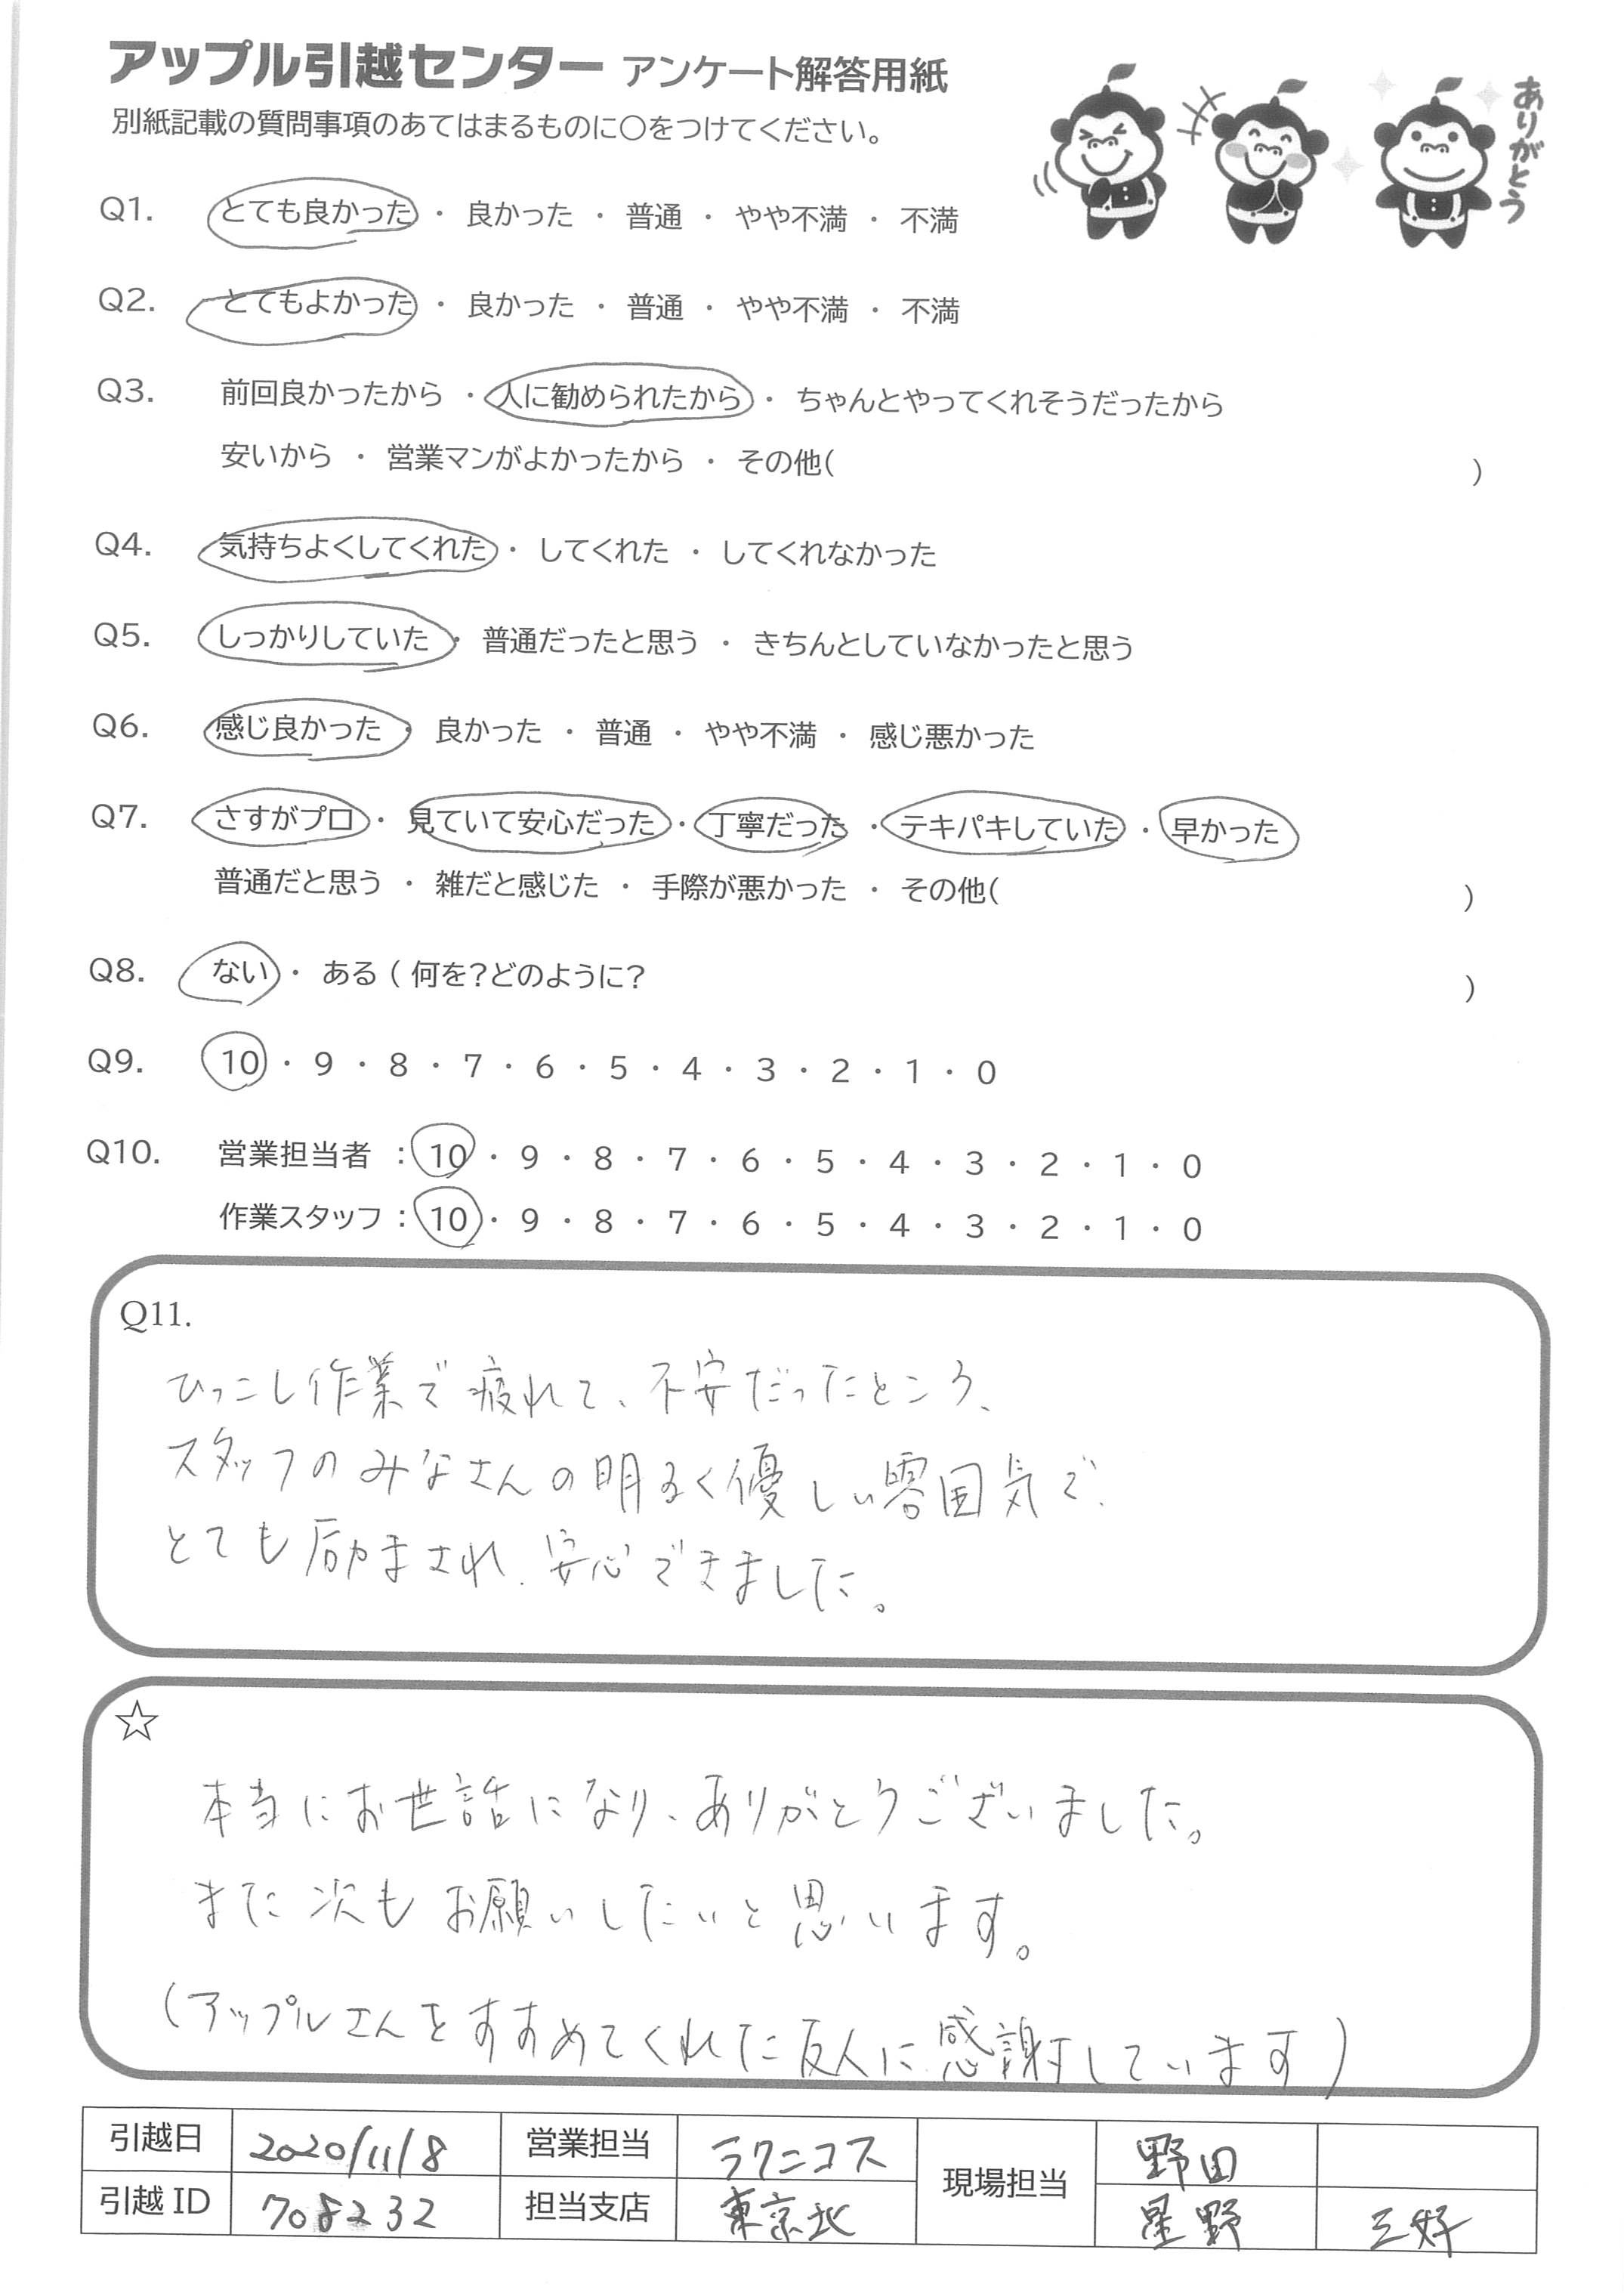 アップル引越センター アンケート解答用紙
別紙記載の質問事項のあてはまるものに○をつけてください。
ありがとう
Q1. とても良かった ・ 良かった ・ 普通 ・ やや不満 ・ 不満
Q2. とてもよかった ・ 良かった ・ 普通 ・ やや不満 ・ 不満
Q3. 前回良かったから ・ 人に勧められたから ・ ちゃんとやってくれそうだったから
安いから ・ 営業マンがよかったから ・ その他( )
Q4. 気持ちよくしてくれた ・ してくれた ・ してくれなかった
Q5. しっかりしていた ・ 普通だったと思う ・ きちんとしていなかったと思う
Q6. 感じ良かった ・ 良かった ・ 普通 ・ やや不満 ・ 感じ悪かった
Q7. さすがプロ ・ 見ていて安心だった ・ 丁寧だった ・ テキパキしていた ・ 早かった
普通だと思う ・ 雑だと感じた ・ 手際が悪かった ・ その他( )
Q8. ない ・ ある ( 何を?どのように? )
Q9. 10 ・ 9 ・ 8 ・ 7 ・ 6 ・ 5 ・ 4 ・ 3 ・ 2 ・ 1 ・ 0
Q10. 営業担当者 : 10 ・ 9 ・ 8 ・ 7 ・ 6 ・ 5 ・ 4 ・ 3 ・ 2 ・ 1 ・ 0
作業スタッフ : 10 ・ 9 ・ 8 ・ 7 ・ 6 ・ 5 ・ 4 ・ 3 ・ 2 ・ 1 ・ 0
Q11.
ひっこし作業で疲れて、不安だったところ、
スタッフのみなさんの明るく優しい雰囲気で、
とても励まされ、安心できました。
☆
本当にお世話になり、ありがとうございました。
また次もお願いしたいと思います。
(アップルさんをすすめてくれた友人に感謝しています)
引越日 2020/11/8 営業担当 ラクニコス 現場担当 野田
引越ID 708232 担当支店 東京北 星野 三好